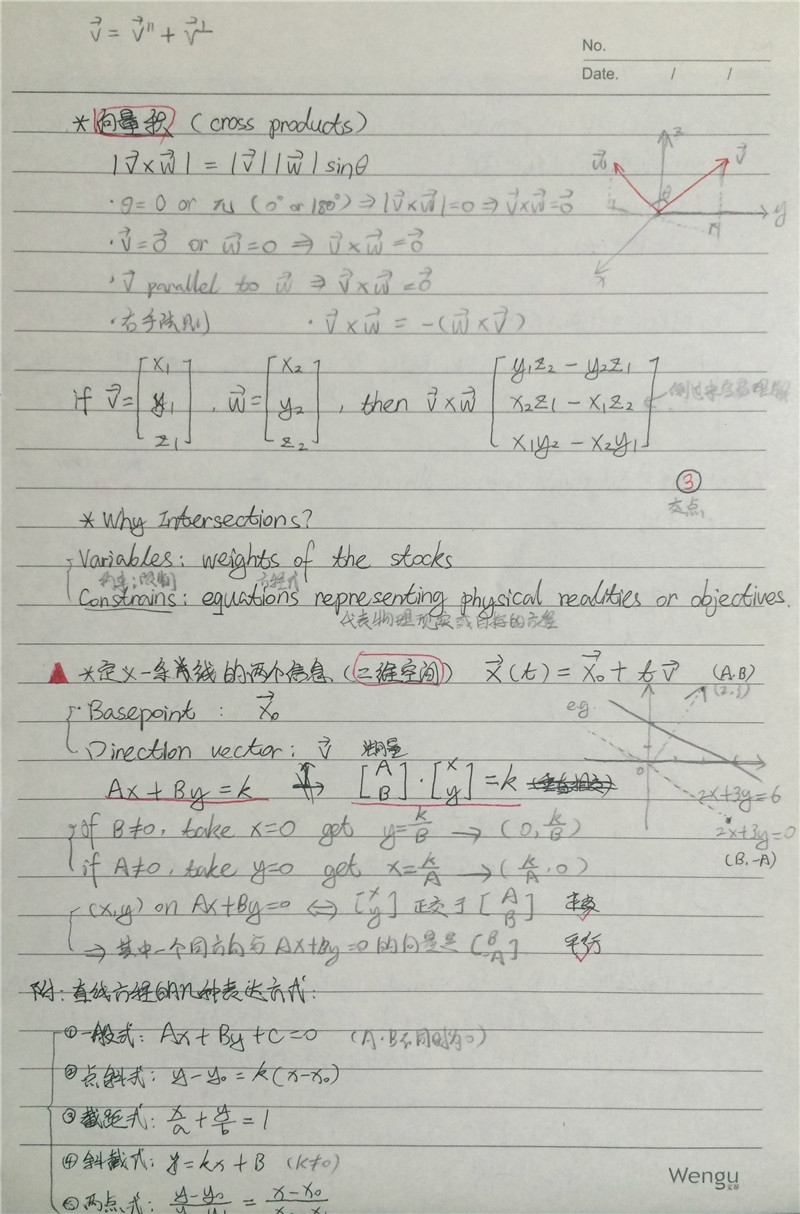 v⃗ = v⃗ ∥ + v⃗ ⊥
No.
Date. / /
* 向量积 (cross products)
|v⃗×w⃗| = |v⃗||w⃗| sinθ
z w⃗ v⃗ θ y x
·θ=0 or π (0° or 180°) ⇒ |v⃗×w⃗|=0 ⇒ v⃗×w⃗=0⃗
·v⃗=0⃗ or w⃗=0 ⇒ v⃗×w⃗=0⃗
·v⃗ parallel to w⃗ ⇒ v⃗×w⃗=0⃗
·右手法则 ·v⃗×w⃗ = -(w⃗×v⃗)
if v⃗=[x₁ y₁ z₁], w⃗=[x₂ y₂ z₂], then v⃗×w⃗ [y₁z₂ - y₂z₁ x₂z₁ - x₁z₂ x₁y₂ - x₂y₁]
③
交点
* Why Intersections?
Variables: weights of the stocks
约束;限制 方程式
Constrains: equations representing physical realities or objectives.
代表物理现实或目标的方程
*定义一条直线的两个信息 (二维空间) x⃗(t) = x⃗₀ + tv⃗ (A.B)
(2,3)
·Basepoint : x⃗₀
e.g.
·Direction vector: v⃗
Ax + By = k ⇔ [A B]·[x y] = k
0
2x+3y=6
2x+3y=0
(B,-A)
if B≠0, take x=0 get y=k/B → (0, k/B)
if A≠0, take y=0 get x=k/A → (k/A, 0)
(x,y) on Ax+By=0 ⇔ [x y] 正交于 [A B]
→ 其中一个同方向与Ax+By=0的向量是 [B -A] 平行
附: 直线方程的几种表达方式:
①一般式: Ax + By + C = 0 (A·B不同时为0)
②点斜式: y-y₀ = k(x-x₀)
③截距式: x/a + y/b = 1
④斜截式: y = kx + B (k≠0)
Wengu
⑤两点式: y-y₀ = x-x₀